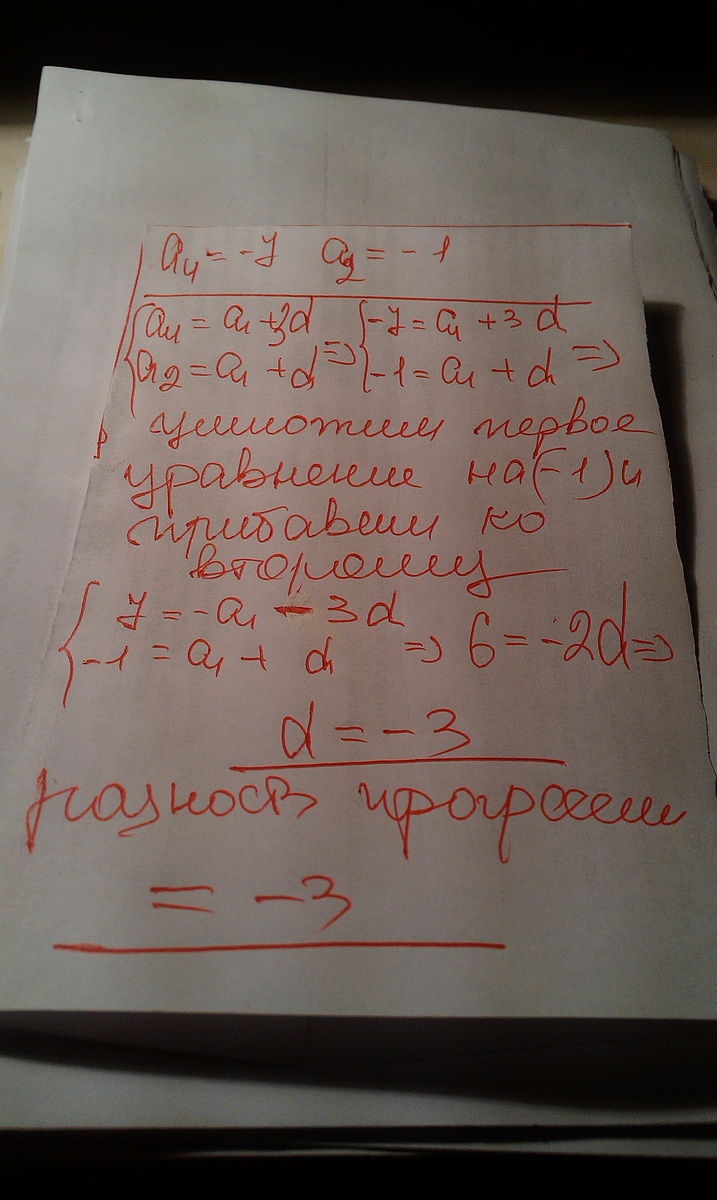 a₄ = -7 a₂ = -1
{a₄ = a₁ + 3d {-7 = a₁ + 3d
{a₂ = a₁ + d => {-1 = a₁ + d =>
умножим первое
уравнение на (-1) и
прибавим ко
второму
{7 = -a₁ - 3d
{-1 = a₁ + d => 6 = -2d =>
d = -3
разность прогрессии
= -3